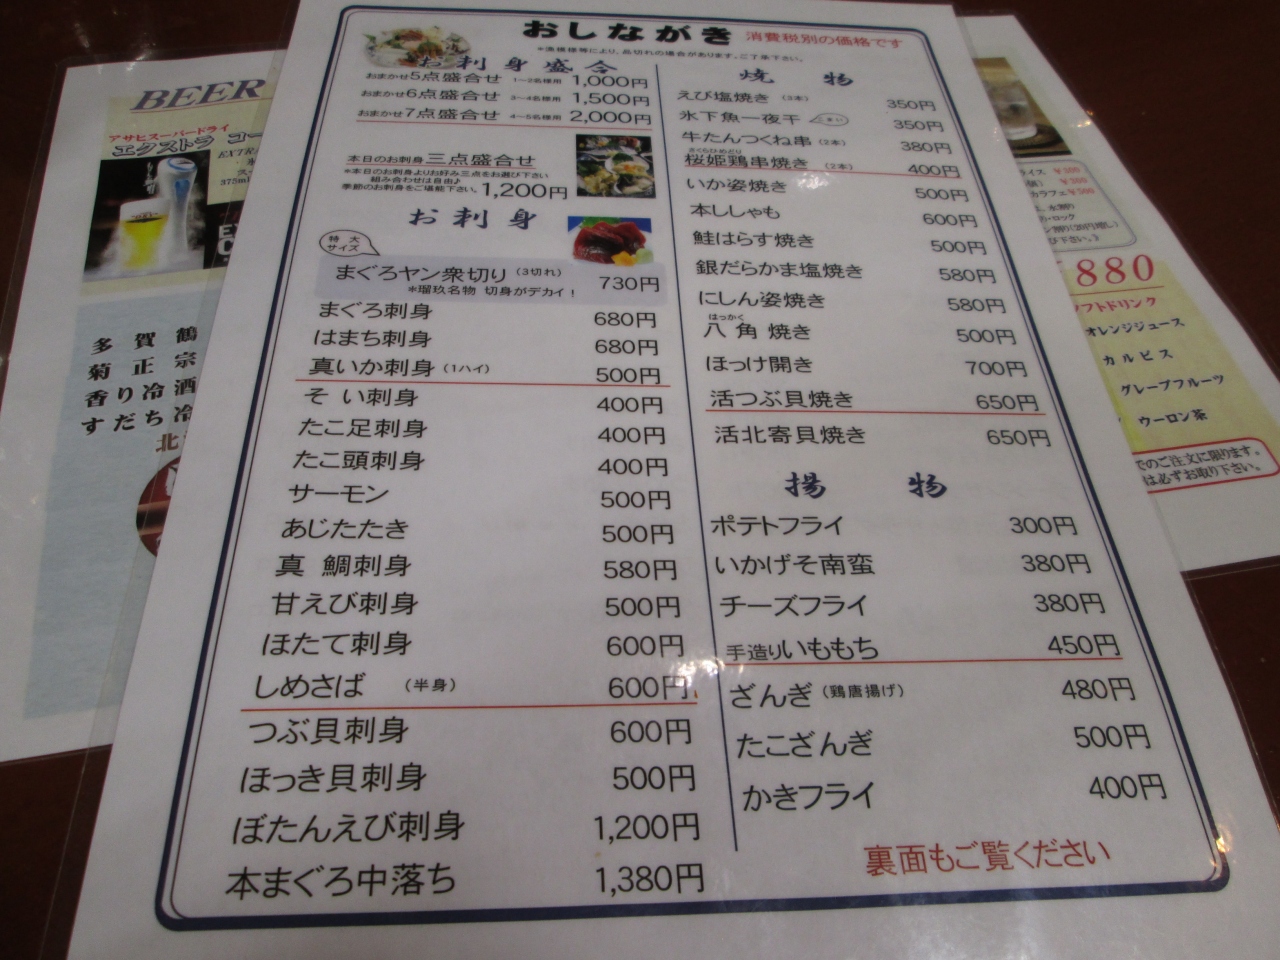 おしながき 消費税別の価格です
＊漁模様等により、品切れの場合があります。ご了承下さい。
お刺身盛合
おまかせ5点盛合せ 1～2名様用 1,000円
おまかせ6点盛合せ 3～4名様用 1,500円
おまかせ7点盛合せ 4～5名様用 2,000円
本日のお刺身 三点盛合せ
＊本日のお刺身よりお好み三点をお選び下さい
組み合わせは自由♪
季節のお刺身をご堪能下さい。 1,200円
お刺身
特大サイズ
まぐろヤン衆切り（3切れ） 730円
＊瑠玖名物 切身がデカイ！
まぐろ刺身 680円
はまち刺身 680円
真いか刺身（1ハイ） 500円
そい刺身 400円
たこ足刺身 400円
たこ頭刺身 400円
サーモン 500円
あじたたき 500円
真鯛刺身 580円
甘えび刺身 500円
ほたて刺身 600円
しめさば （半身） 600円
つぶ貝刺身 600円
ほっき貝刺身 500円
ぼたんえび刺身 1,200円
本まぐろ中落ち 1,380円
焼物
えび塩焼き（3本） 350円
氷下魚一夜干 こまい 350円
牛たんつくね串（2本） 380円
さくらひめどり
桜姫鶏串焼き（2本） 400円
いか姿焼き 500円
本ししゃも 600円
鮭はらす焼き 500円
銀だらかま塩焼き 580円
にしん姿焼き 580円
はっかく
八角焼き 500円
ほっけ開き 700円
活つぶ貝焼き 650円
活北寄貝焼き 650円
揚物
ポテトフライ 300円
いかげそ南蛮 380円
チーズフライ 380円
手造りいももち 450円
ざんぎ（鶏唐揚げ） 480円
たこざんぎ 500円
かきフライ 400円
裏面もご覧ください
BEER
アサヒスーパードライ
エクストラ コー
EXTRA
375ml
多賀鶴
菊正宗
香り冷酒
すだち冷
北
ライス ￥300
￥300
カラフェ ￥500
水割り
ロック
び下さい。》
880
フトドリンク
オレンジジュース
カルピス
グレープフルーツ
ウーロン茶
でのご注文に限ります。
は必ずお取り下さい。